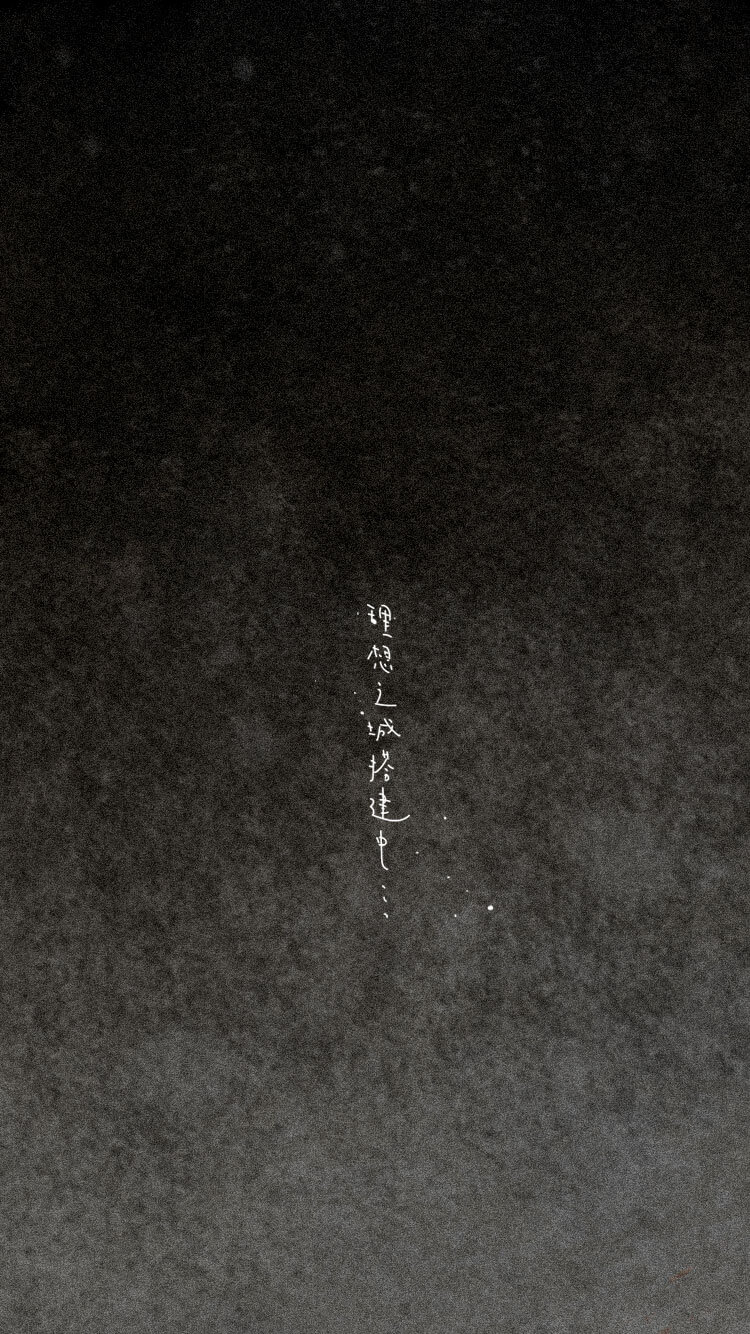 理想之城搭建中...